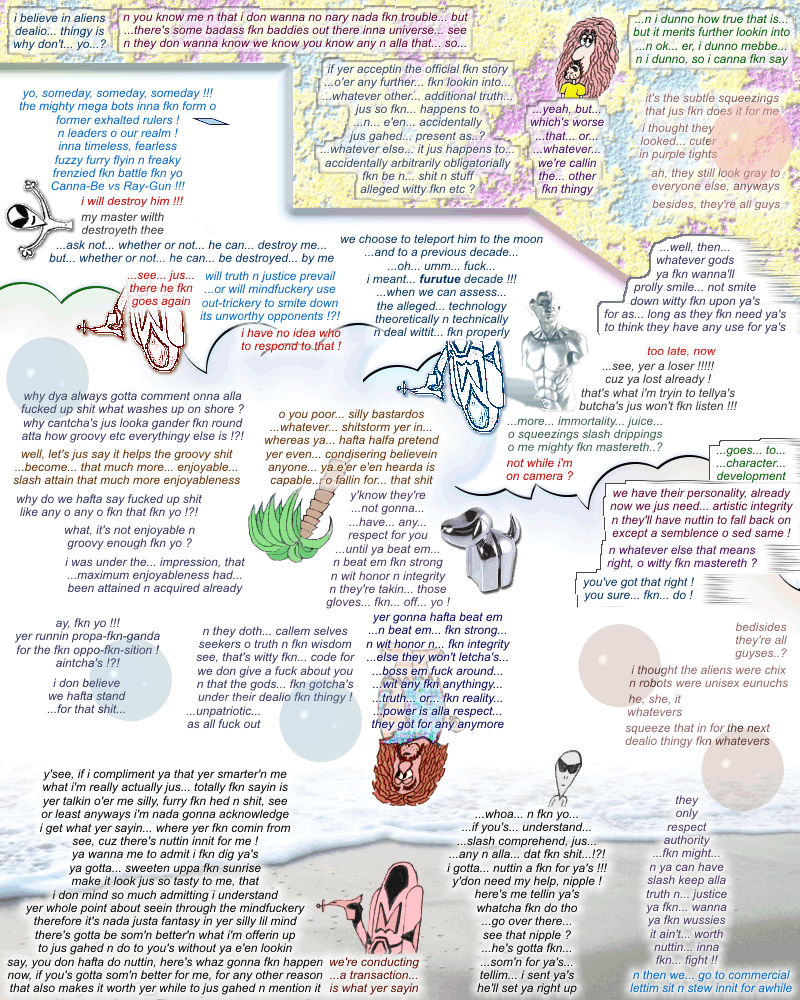 i believe in aliens
dealio... thingy is
why don't... yo...?
n you know me n that i don wanna no nary nada fkn trouble... but
...there's some badass fkn baddies out there inna universe... see
n they don wanna know we know you know any n alla that... so...
...n i dunno how true that is...
but it merits further lookin into
...n ok... er, i dunno mebbe...
n i dunno, so i canna fkn say
if yer acceptin the official fkn story
...o'er any further... fkn lookin into...
...whatever other... additional truth...
jus so fkn... happens to
...n... e'en... accidentally
jus gahed... present as..?
...whatever else... it jus happens to...
accidentally arbitrarily obligatorially
fkn be n... shit n stuff
alleged witty fkn etc ?
...yeah, but...
which's worse
...that... or...
...whatever...
we're callin
the... other
fkn thingy
it's the subtle squeezings
that jus fkn does it for me
i thought they
looked... cuter
in purple tights
ah, they still look gray to
everyone else, anyways
besides, they're all guys
yo, someday, someday, someday !!!
the mighty mega bots inna fkn form o
former exhalted rulers !
n leaders o our realm !
inna timeless, fearless
fuzzy furry flyin n freaky
frenzied fkn battle fkn yo
Canna-Be vs Ray-Gun !!!
i will destroy him !!!
my master wilth
destroyeth thee
...ask not... whether or not... he can... destroy me...
but... whether or not... he can... be destroyed... by me
...see... jus...
there he fkn
goes again
will truth n justice prevail
...or will mindfuckery use
out-trickery to smite down
its unworthy opponents !?!
i have no idea who
to respond to that !
we choose to teleport him to the moon
...and to a previous decade...
...oh... umm... fuck...
i meant... furutue decade !!!
...when we can assess...
the alleged... technology
theoretically n technically
n deal wittit... fkn properly
...well, then...
whatever gods
ya fkn wanna'll
prolly smile... not smite
down witty fkn upon ya's
for as... long as they fkn need ya's
to think they have any use for ya's
too late, now
...see, yer a loser !!!!!
cuz ya lost already !
that's what i'm tryin to tellya's
butcha's jus won't fkn listen !!!
...more... immortality... juice...
o squeezings slash drippings
o me mighty fkn mastereth..?
not while i'm
on camera ?
...goes... to...
...character...
development
why dya always gotta comment onna alla
fucked up shit what washes up on shore ?
why cantcha's jus looka gander fkn round
atta how groovy etc everythingy else is !?!
well, let's jus say it helps the groovy shit
...become... that much more... enjoyable...
slash attain that much more enjoyableness
why do we hafta say fucked up shit
like any o any o fkn that fkn yo !?!
what, it's not enjoyable n
groovy enough fkn yo ?
i was under the... impression, that
...maximum enjoyableness had...
been attained n acquired already
o you poor... silly bastardos
...whatever... shitstorm yer in...
whereas ya... hafta halfa pretend
yer even... condisering believein
anyone... ya e'er e'en hearda is
capable... o fallin for... that shit
y'know they're
...not gonna...
...have... any...
respect for you
...until ya beat em...
n beat em fkn strong
n wit honor n integrity
n they're takin... those
gloves... fkn... off... yo !
we have their personality, already
now we jus need... artistic integrity
n they'll have nuttin to fall back on
except a semblence o sed same !
n whatever else that means
right, o witty fkn mastereth ?
you've got that right !
you sure... fkn... do !
ay, fkn yo !!!
yer runnin propa-fkn-ganda
for the fkn oppo-fkn-sition !
aintcha's !?!
i don believe
we hafta stand
...for that shit...
n they doth... callem selves
seekers o truth n fkn wisdom
see, that's witty fkn... code for
we don give a fuck about you
n that the gods... fkn gotcha's
under their dealio fkn thingy !
...unpatriotic...
as all fuck out
yer gonna hafta beat em
...n beat em... fkn strong...
n wit honor n... fkn integrity
...else they won't letcha's...
...boss em fuck around...
...wit any fkn anythingy...
...truth... or... fkn reality...
...power is alla respect...
they got for any anymore
bedisides
they're all
guyses..?
i thought the aliens were chix
n robots were unisex eunuchs
he, she, it
whatevers
squeeze that in for the next
dealio thingy fkn whatevers
y'see, if i compliment ya that yer smarter'n me
what i'm really actually jus... totally fkn sayin is
yer talkin o'er me silly, furry fkn hed n shit, see
or least anyways i'm nada gonna acknowledge
i get what yer sayin... where yer fkn comin from
see, cuz there's nuttin innit for me !
ya wanna me to admit i fkn dig ya's
ya gotta... sweeten uppa fkn sunrise
make it look jus so tasty to me, that
i don mind so much admitting i understand
yer whole point about seein through the mindfuckery
therefore it's nada justa fantasy in yer silly lil mind
there's gotta be som'n better'n what i'm offerin up
to jus gahed n do to you's without ya e'en lookin
say, you don hafta do nuttin, here's whaz gonna fkn happen
now, if you's gotta som'n better for me, for any other reason
that also makes it worth yer while to jus gahed n mention it
we're conducting
...a transaction...
is what yer sayin
...whoa... n fkn yo...
...if you's... understand...
...slash comprehend, jus...
...any n alla... dat fkn shit...!?!
i gotta... nuttin a fkn for ya's !!!
y'don need my help, nipple !
here's me tellin ya's
whatcha fkn do tho
...go over there...
see that nipple ?
...he's gotta fkn...
...som'n for ya's...
tellim... i sent ya's
he'll set ya right up
they
only
respect
authority
...fkn might...
n ya can have
slash keep alla
truth n... justice
ya fkn... wanna
ya fkn wussies
it ain't... worth
nuttin... inna
fkn... fight !!
n then we... go to commercial
lettim sit n stew innit for awhile